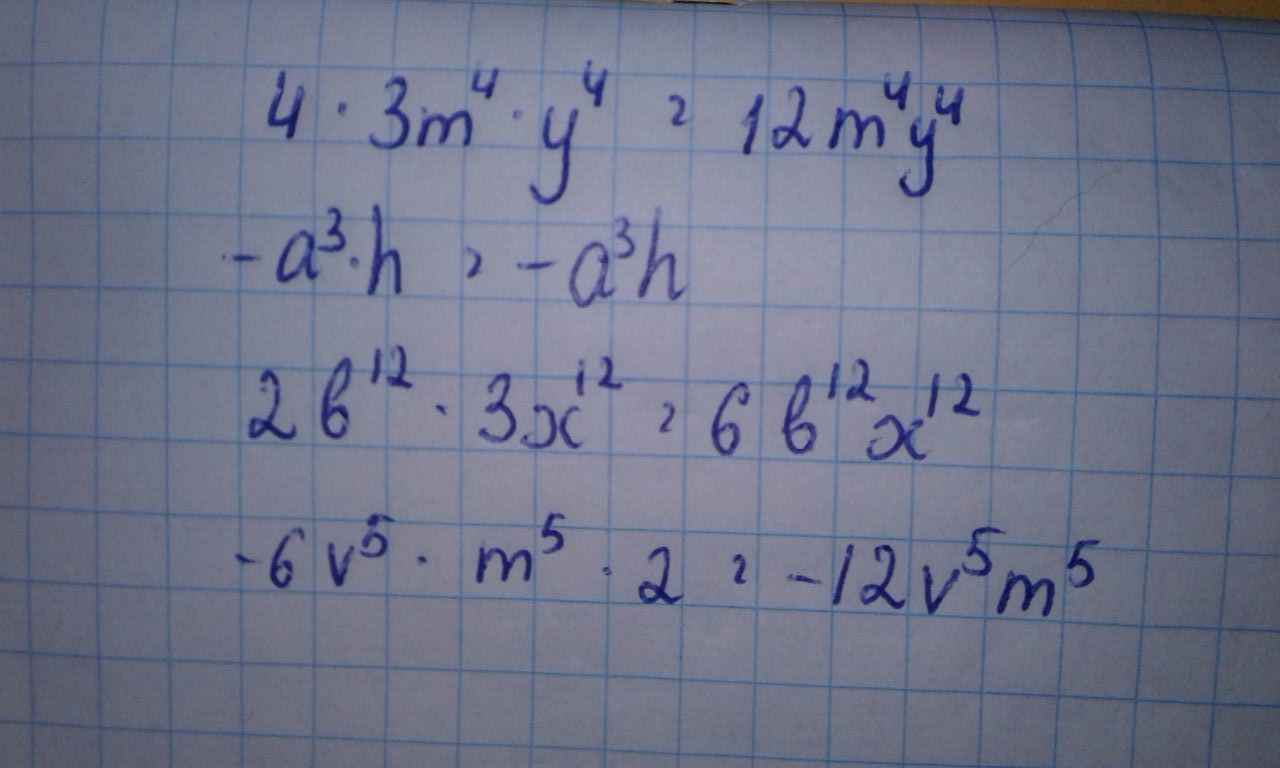 4 · 3m⁴ · y⁴ = 12m⁴y⁴
-a³·h = -a³h
2b¹² · 3x¹² = 6b¹²x¹²
-6v⁵ · m⁵ · 2 = -12v⁵m⁵